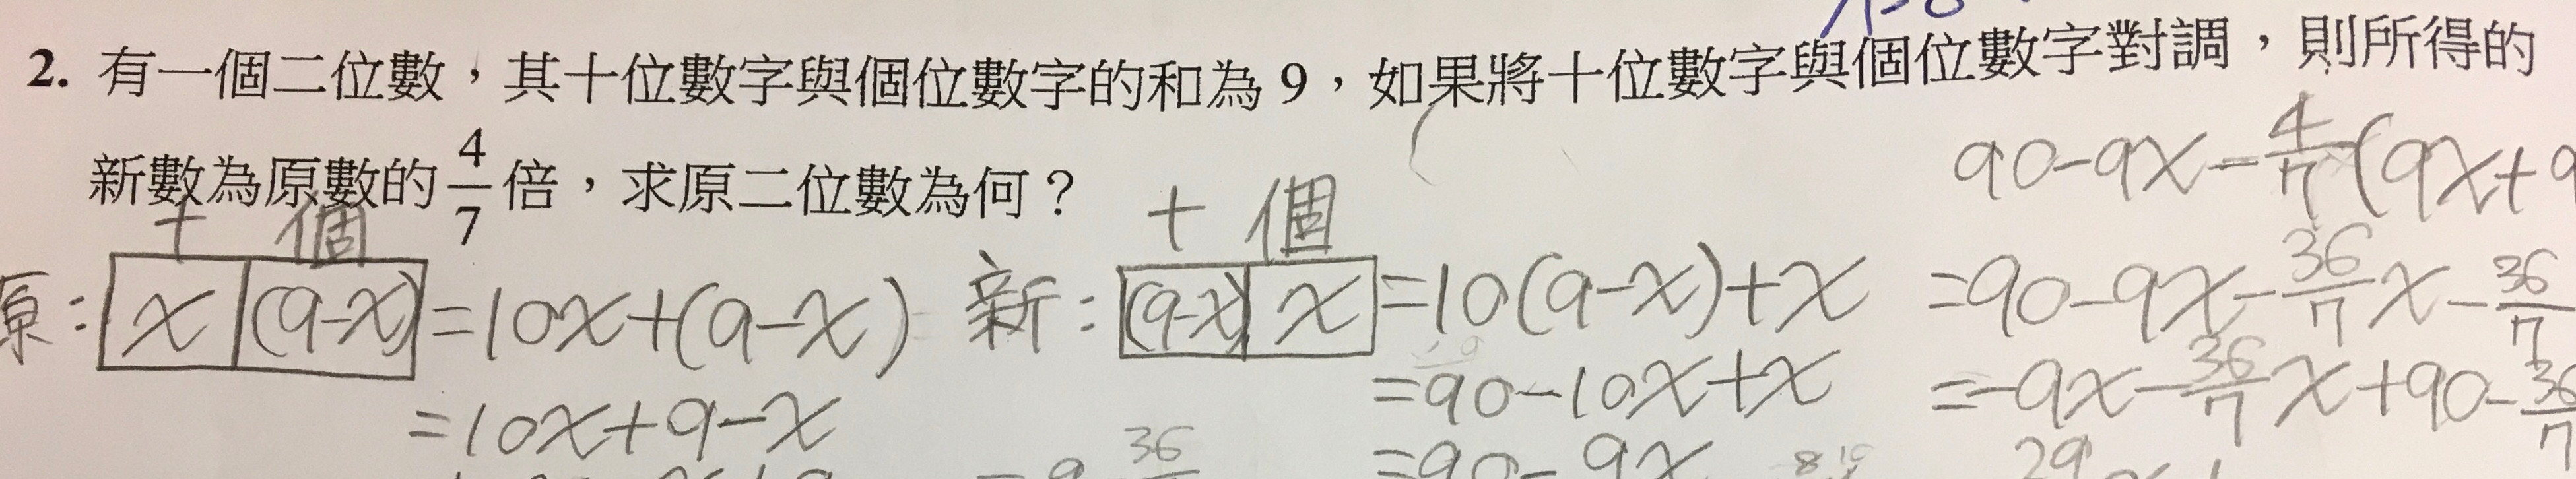 2. 有一個二位數，其十位數字與個位數字的和為 9，如果將十位數字與個位數字對調，則所得的
新數為原數的 4/7 倍，求原二位數為何？
十 個
原：x (9-x) =10x+(9-x)
=10x+9-x
十 個
新：(9-x) x =10(9-x)+x
=90-10x+x
=90-9x
90-9x-4/7(9x+9
=90-9x-36/7x-36/7
=-9x-36/7x+90-36/7